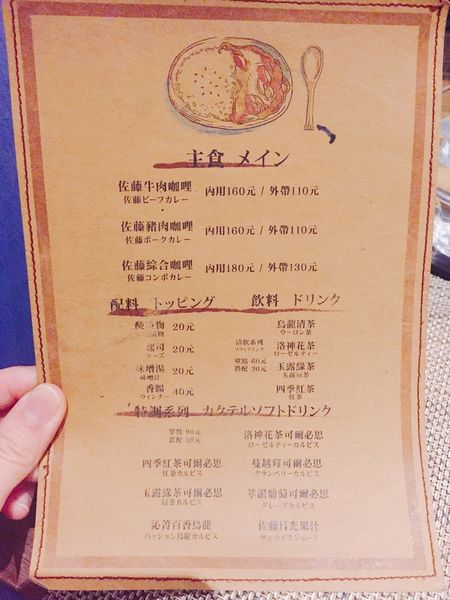 主食 メイン
佐藤牛肉咖哩 內用160元 / 外帶110元
佐藤ビーフカレー
佐藤豬肉咖哩 內用160元 / 外帶110元
佐藤ポークカレー
佐藤綜合咖哩 內用180元 / 外帶130元
佐藤コンボカレー
配料 トッピング 飲料 ドリンク
醃漬物 20元
起司 20元
チーズ
味增湯 20元
味噌汁
香腸 40元
ウィンナー
清飲系列
單點 60元
搭配 30元
烏龍清茶
ウーロン茶
洛神花茶
ローゼルティー
玉露綠茶
玉露緑茶
四季紅茶
紅茶
特調系列 カクテルソフトドリンク
單點 90元
搭配 50元
洛神花茶可爾必思
ローゼルティーカルピス
四季紅茶可爾必思
紅茶カルピス
蔓越莓可爾必思
クランベリーカルピス
玉露綠茶可爾必思
緑茶カルピス
葡萄可爾必思
グレープカルピス
百香烏龍
パッション烏龍カルピス
佐藤日光果汁
サンライズジュース